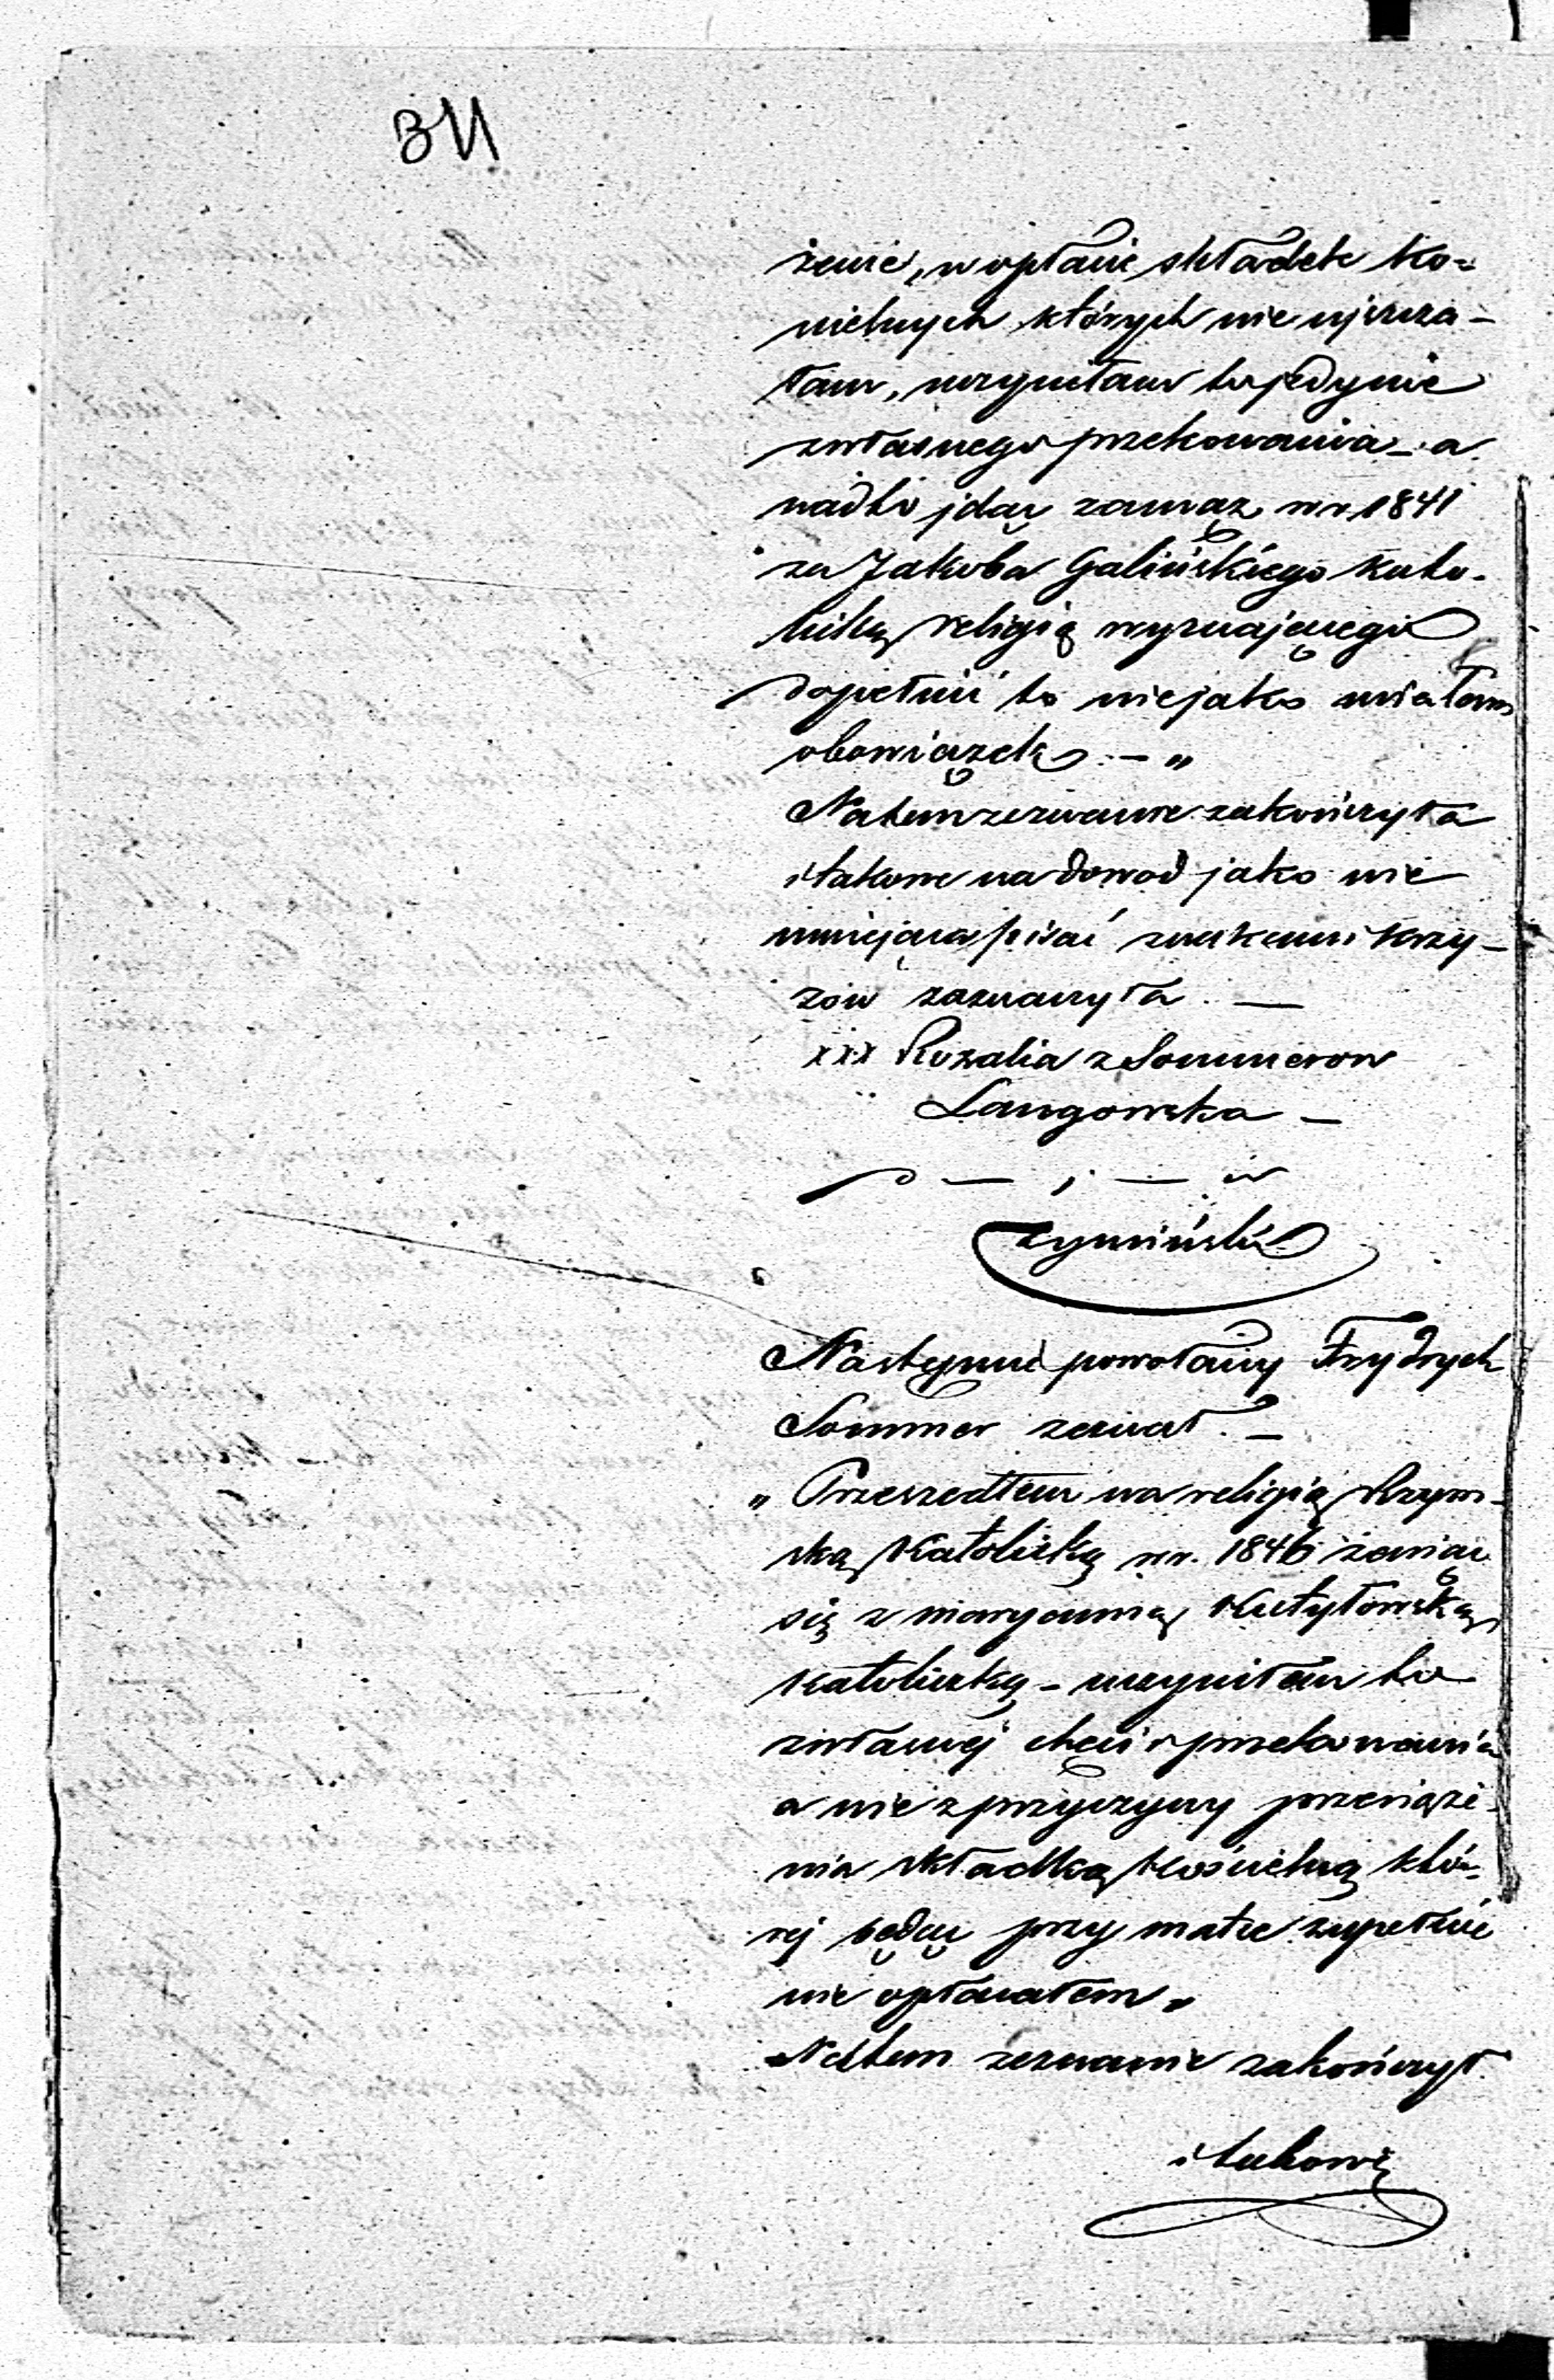 311
żenie, w opłacie składek ko=
ścielnych których nie uiszcza-
łam, uczyniłam to jedynie
z własnego przekonania - a
nadto idąc zamąż w r. 1841
za Jakoba Galińskiego kato-
licką religią wyznającego
dopełnić to niejako miałam
obowiązek. - "
Natem zeznanie zakończyła
i takowe na dowod jako nie
umiejąca pisać znakami krzy-
żów zaznaczyła. —
xxx Rozalia z Sommerow
Langowska —
Następnie powołany Frydrych
Sommer zeznał. —
" Przeszedłem na religią Rzym-
ską Katolicką w r. 1846 żeniąc
się z Maryanną Kutyłowską
katoliczką - uczyniłem to
z własnej chęci i przekonania
a nie z przyczyny przeciąże-
nia składką kościelną któ-
rej będąc przy matce zupełnie
nie opłacałem "
Natem zeznanie zakończył
i takowe